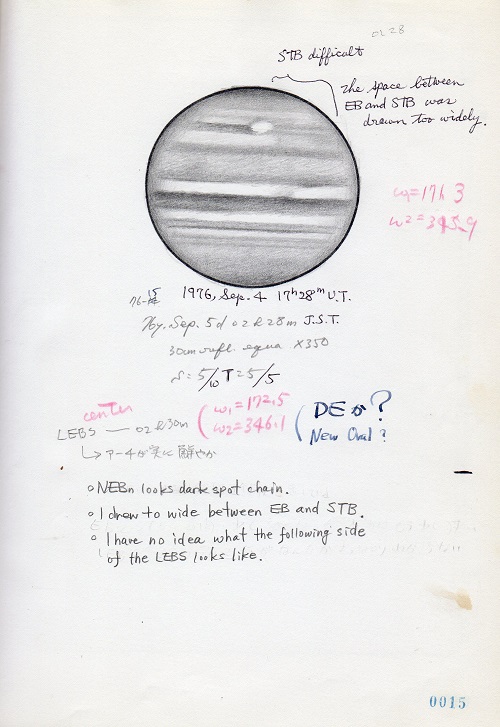 02 28
STB difficult
the space between
EB and STB was
drawn too widely.
ω1=171.3
ω2=345.9
76-15
1976, Sep. 4 17h28m U.T.
76y. Sep. 5d 02h28m J.S.T.
30cm refl. equa ×350
S: 5/10 T=5/5
center
LEBS — 02h30m
ω1=172.5
ω2=346.1
DEか?
New Oval?
↳アーチが実に鮮やか
○NEBn looks dark spot chain.
○I drew to wide between EB and STB.
○I have no idea what the following side
of the LEBS looks like.
0015